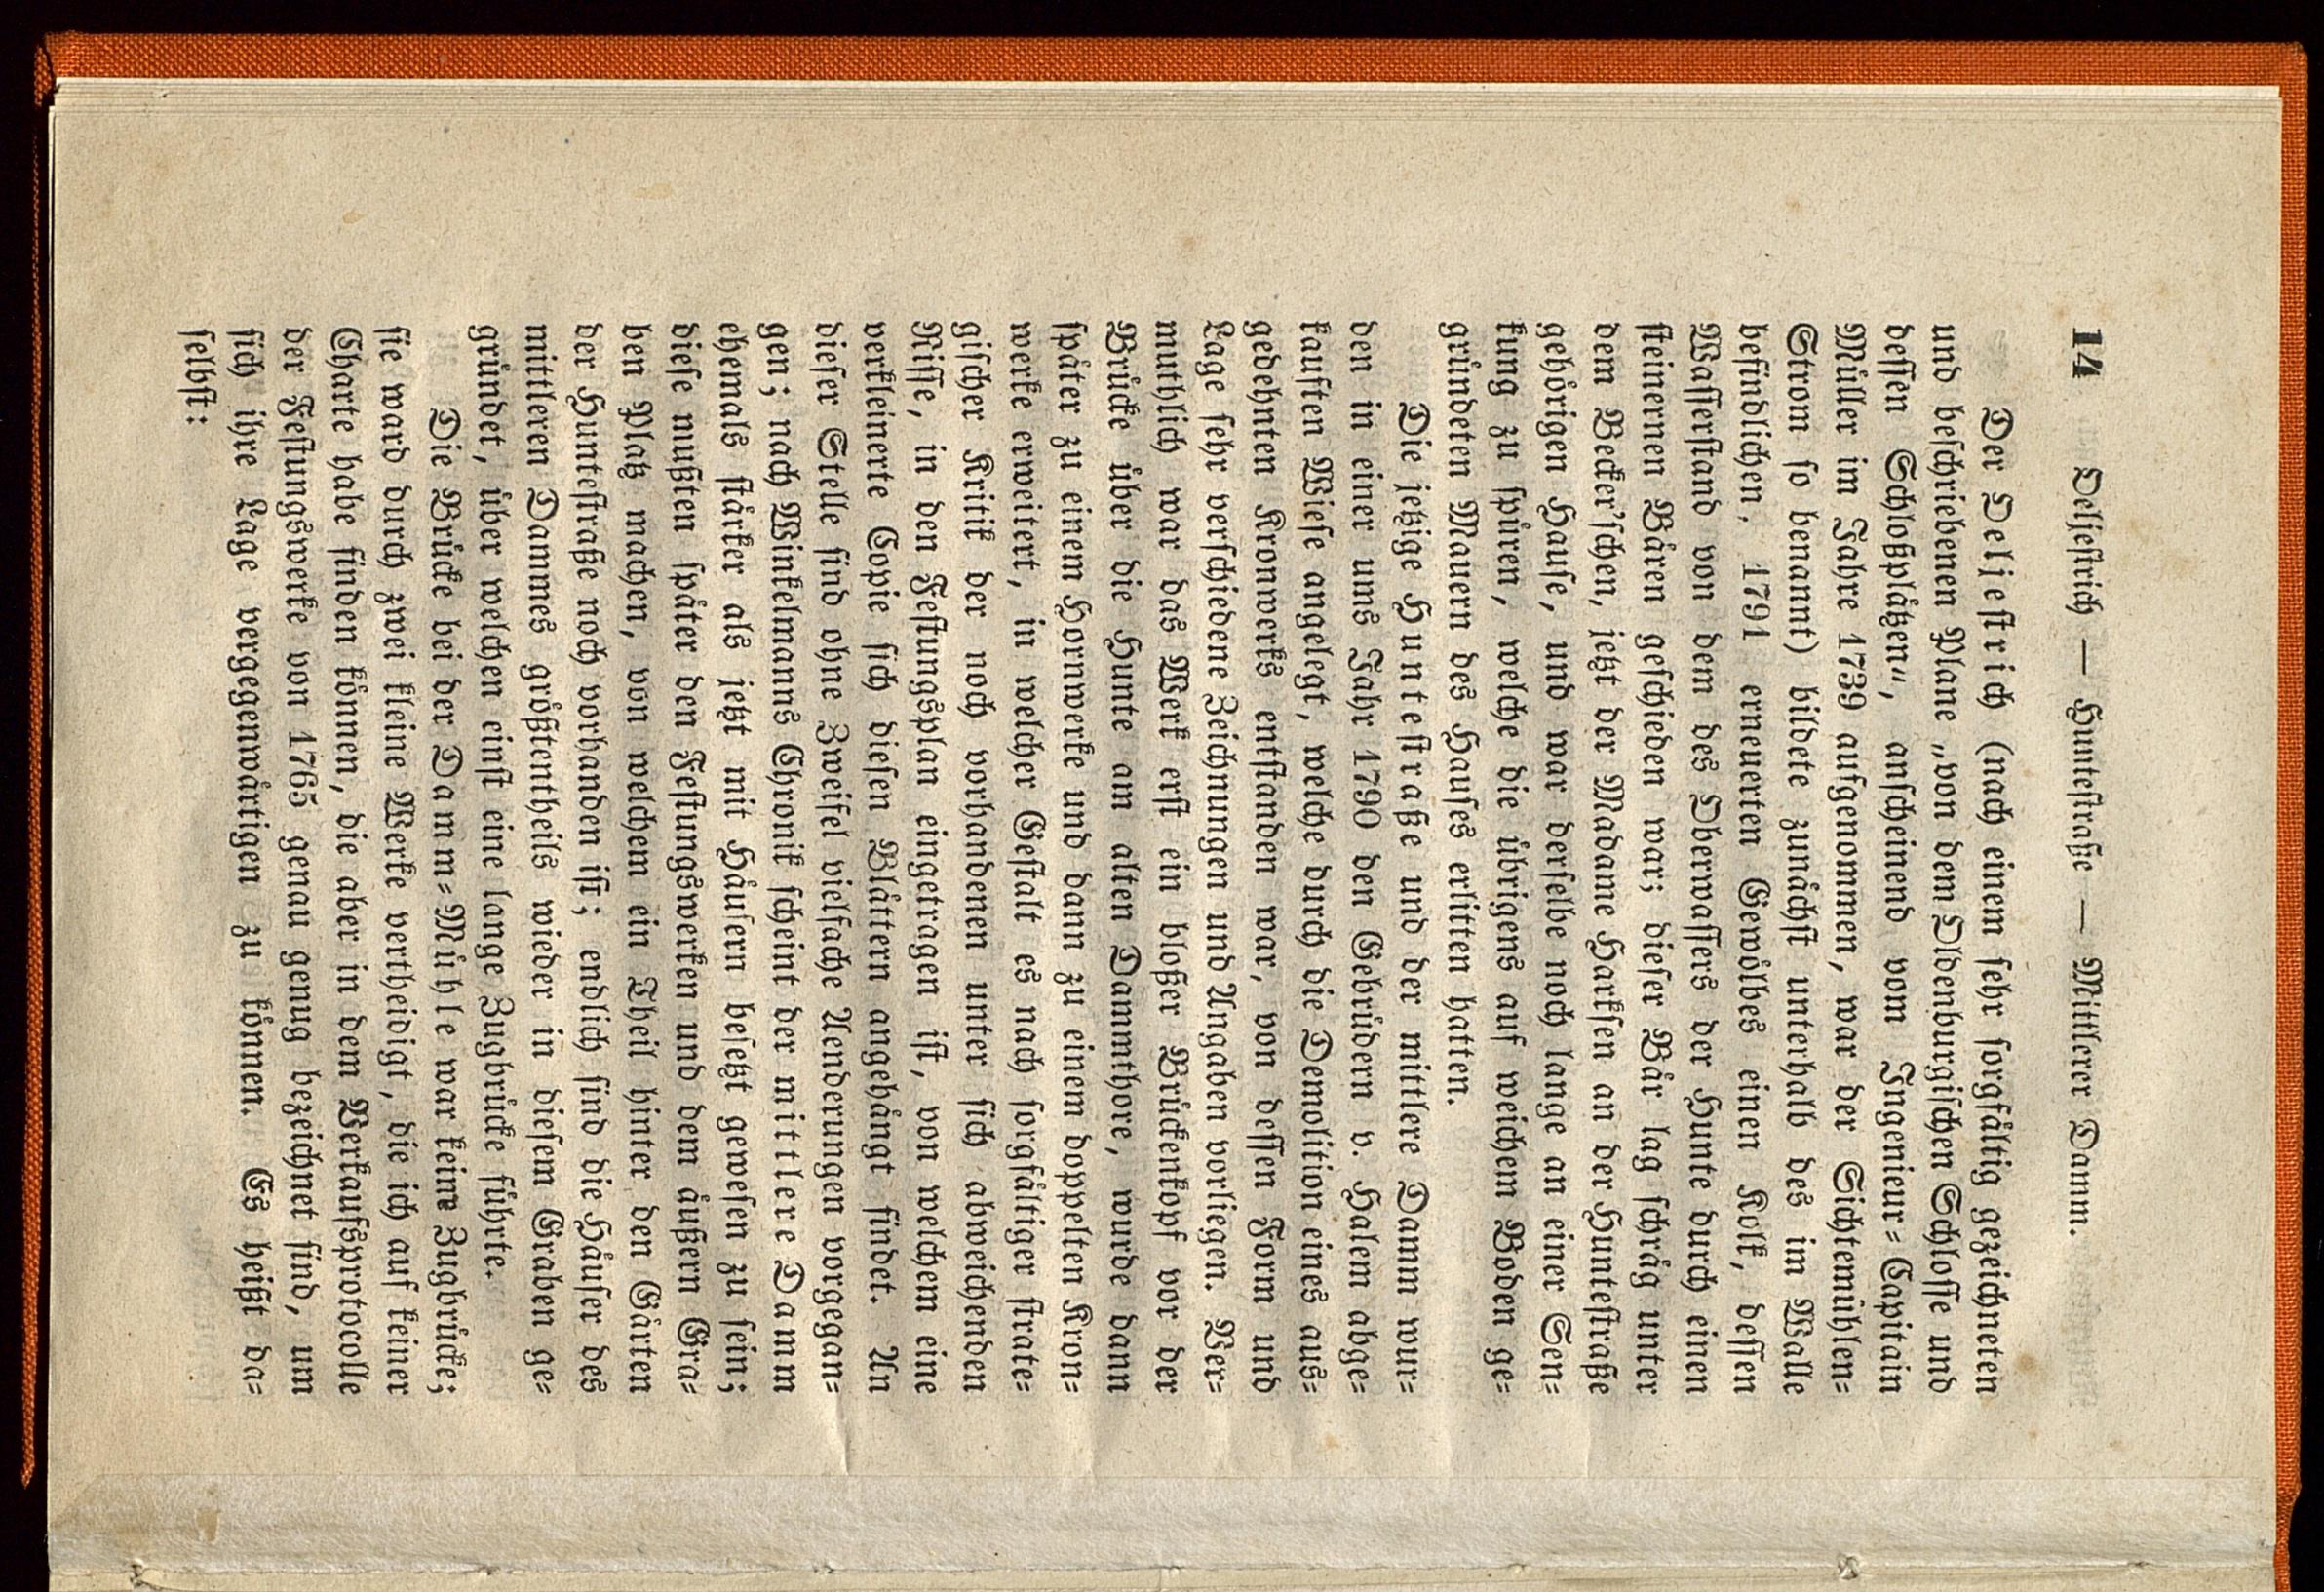 14 Deljestrich — Huntestraße — Mittlerer Damm.
Der Deljestrich (nach einem sehr sorgfältig gezeichneten
und beschriebenen Plane „von dem Oldenburgischen Schlosse und
dessen Schloßplätzen“, anscheinend vom Ingenieur-Capitain
Müller im Jahre 1739 aufgenommen, war der Sichtemühlen-
Strom so benannt) bildete zunächst unterhalb des im Walle
befindlichen, 1791 erneuerten Gewölbes einen Kolk, dessen
Wasserstand von dem des Oberwassers der Hunte durch einen
steinernen Bären geschieden war; dieser Bär lag schräg unter
dem Becker'schen, jetzt der Madame Harksen an der Huntestraße
gehörigen Hause, und war derselbe noch lange an einer Sen-
kung zu spüren, welche die übrigens auf weichem Boden ge-
gründeten Mauern des Hauses erlitten hatten.
Die jetzige Huntestraße und der mittlere Damm wur-
den in einer ums Jahr 1790 den Gebrüdern v. Halem abge-
kauften Wiese angelegt, welche durch die Demolition eines aus-
gedehnten Kronwerks entstanden war, von dessen Form und
Lage sehr verschiedene Zeichnungen und Angaben vorliegen. Ver-
muthlich war das Werk erst ein bloßer Brückenkopf vor der
Brücke über die Hunte am alten Dammthore, wurde dann
später zu einem Hornwerke und dann zu einem doppelten Kron-
werke erweitert, in welcher Gestalt es nach sorgfältiger strate-
gischer Kritik der noch vorhandenen unter sich abweichenden
Risse, in den Festungsplan eingetragen ist, von welchem eine
verkleinerte Copie sich diesen Blättern angehängt findet. An
dieser Stelle sind ohne Zweifel vielfache Aenderungen vorgegan-
gen; nach Winkelmanns Chronik scheint der mittlere Damm
ehemals stärker als jetzt mit Häusern besetzt gewesen zu sein;
diese mußten später den Festungswerken und dem äußern Gra-
ben Platz machen, von welchem ein Theil hinter den Gärten
der Huntestraße noch vorhanden ist; endlich sind die Häuser des
mittleren Dammes größtentheils wieder in diesem Graben ge-
gründet, über welchen einst eine lange Zugbrücke führte.
Die Brücke bei der Damm-Mühle war keine Zugbrücke;
sie ward durch zwei kleine Werke vertheidigt, die ich auf keiner
Charte habe finden können, die aber in dem Verkaufsprotocolle
der Festungswerke von 1765 genau genug bezeichnet sind, um
sich ihre Lage vergegenwärtigen zu können. Es heißt da-
selbst: